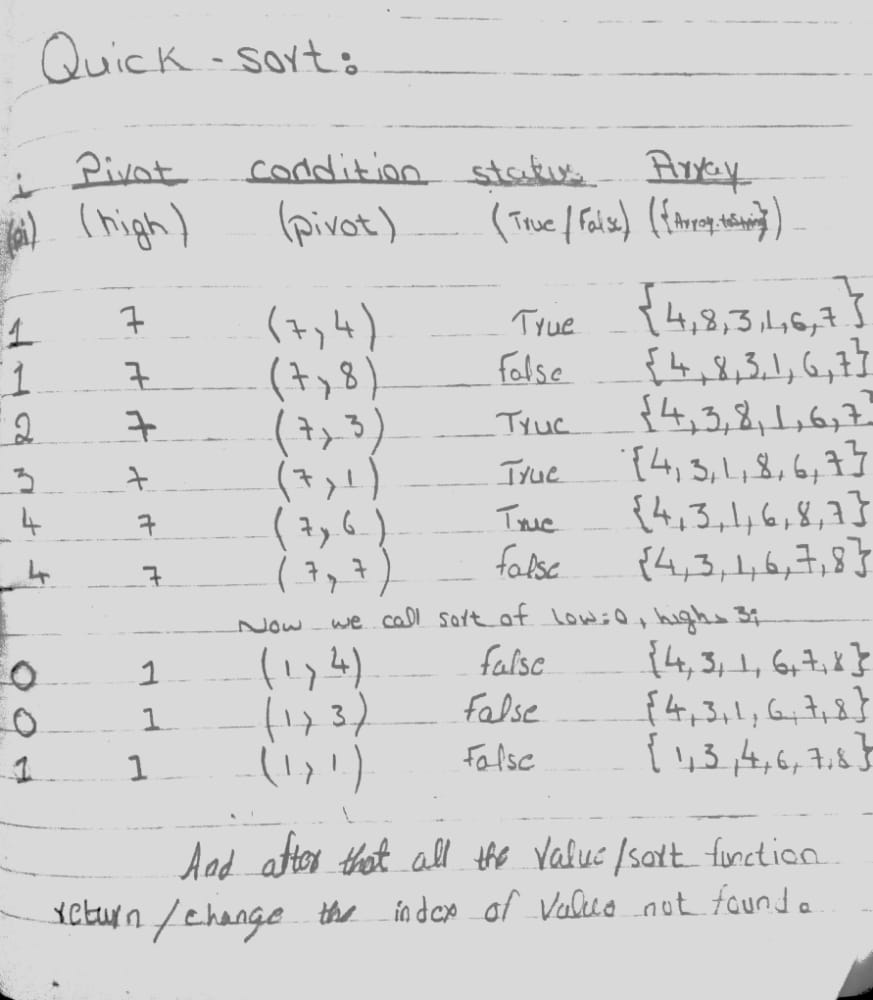 Quick-sort:
i Pivot condition status Array
(pi) (high) (pivot) (True/False) ({Array.toString})
1 7 (7,4) True {4,8,3,1,6,7}
1 7 (7,8) False {4,8,3,1,6,7}
2 7 (7,3) True {4,3,8,1,6,7}
3 7 (7,1) True {4,3,1,8,6,7}
4 7 (7,6) True {4,3,1,6,8,7}
4 7 (7,7) false {4,3,1,6,7,8}
Now we call sort of low=0, high=3;
0 1 (1,4) false {4,3,1,6,7,8}
0 1 (1,3) False {4,3,1,6,7,8}
1 1 (1,1) False {1,3,4,6,7,8}
And after that all the value/sort function
return/change the index of value not found.